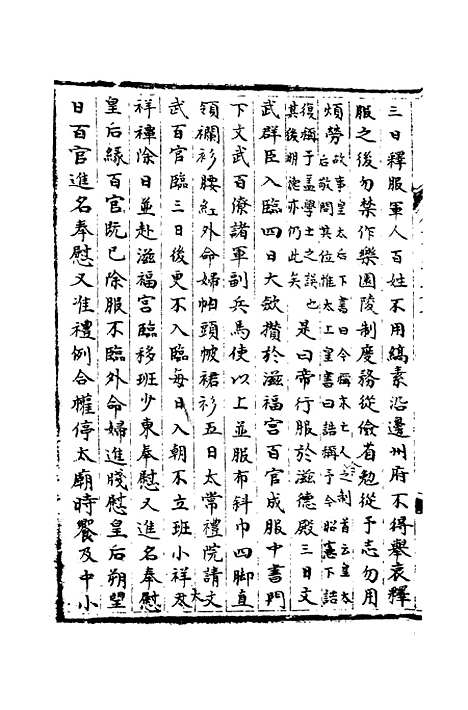 三日釋服軍人百姓不用縞素沿邊州府不得舉哀釋
服之後勿禁作樂園陵制度務從儉省勉從予志勿用
煩勞故事皇太后下書曰令稱未亡人之制首云皇太
后敬問其位惟太上皇書曰誥稱予今昭憲下誥
復稱予蓋學士之誤也
其後明德亦仍此矣是日帝行服於滋德殿三日文
武群臣入臨四日大斂攢於滋福宮百官成服中書門
下文武百僚諸軍副兵馬使以上並服布斜巾四脚直
領襴衫腰絰外命婦帕頭帔裙衫五日太常禮院請文
武百官臨三日後更不入臨每日入朝不立班小祥大
祥禫除日並赴滋福宮臨移班少東奉慰又進名奉慰
皇后緣百官既已除服不臨外命婦進牋慰皇后朔望
日百官進名奉慰又准禮例合權停太廟時饗及中小